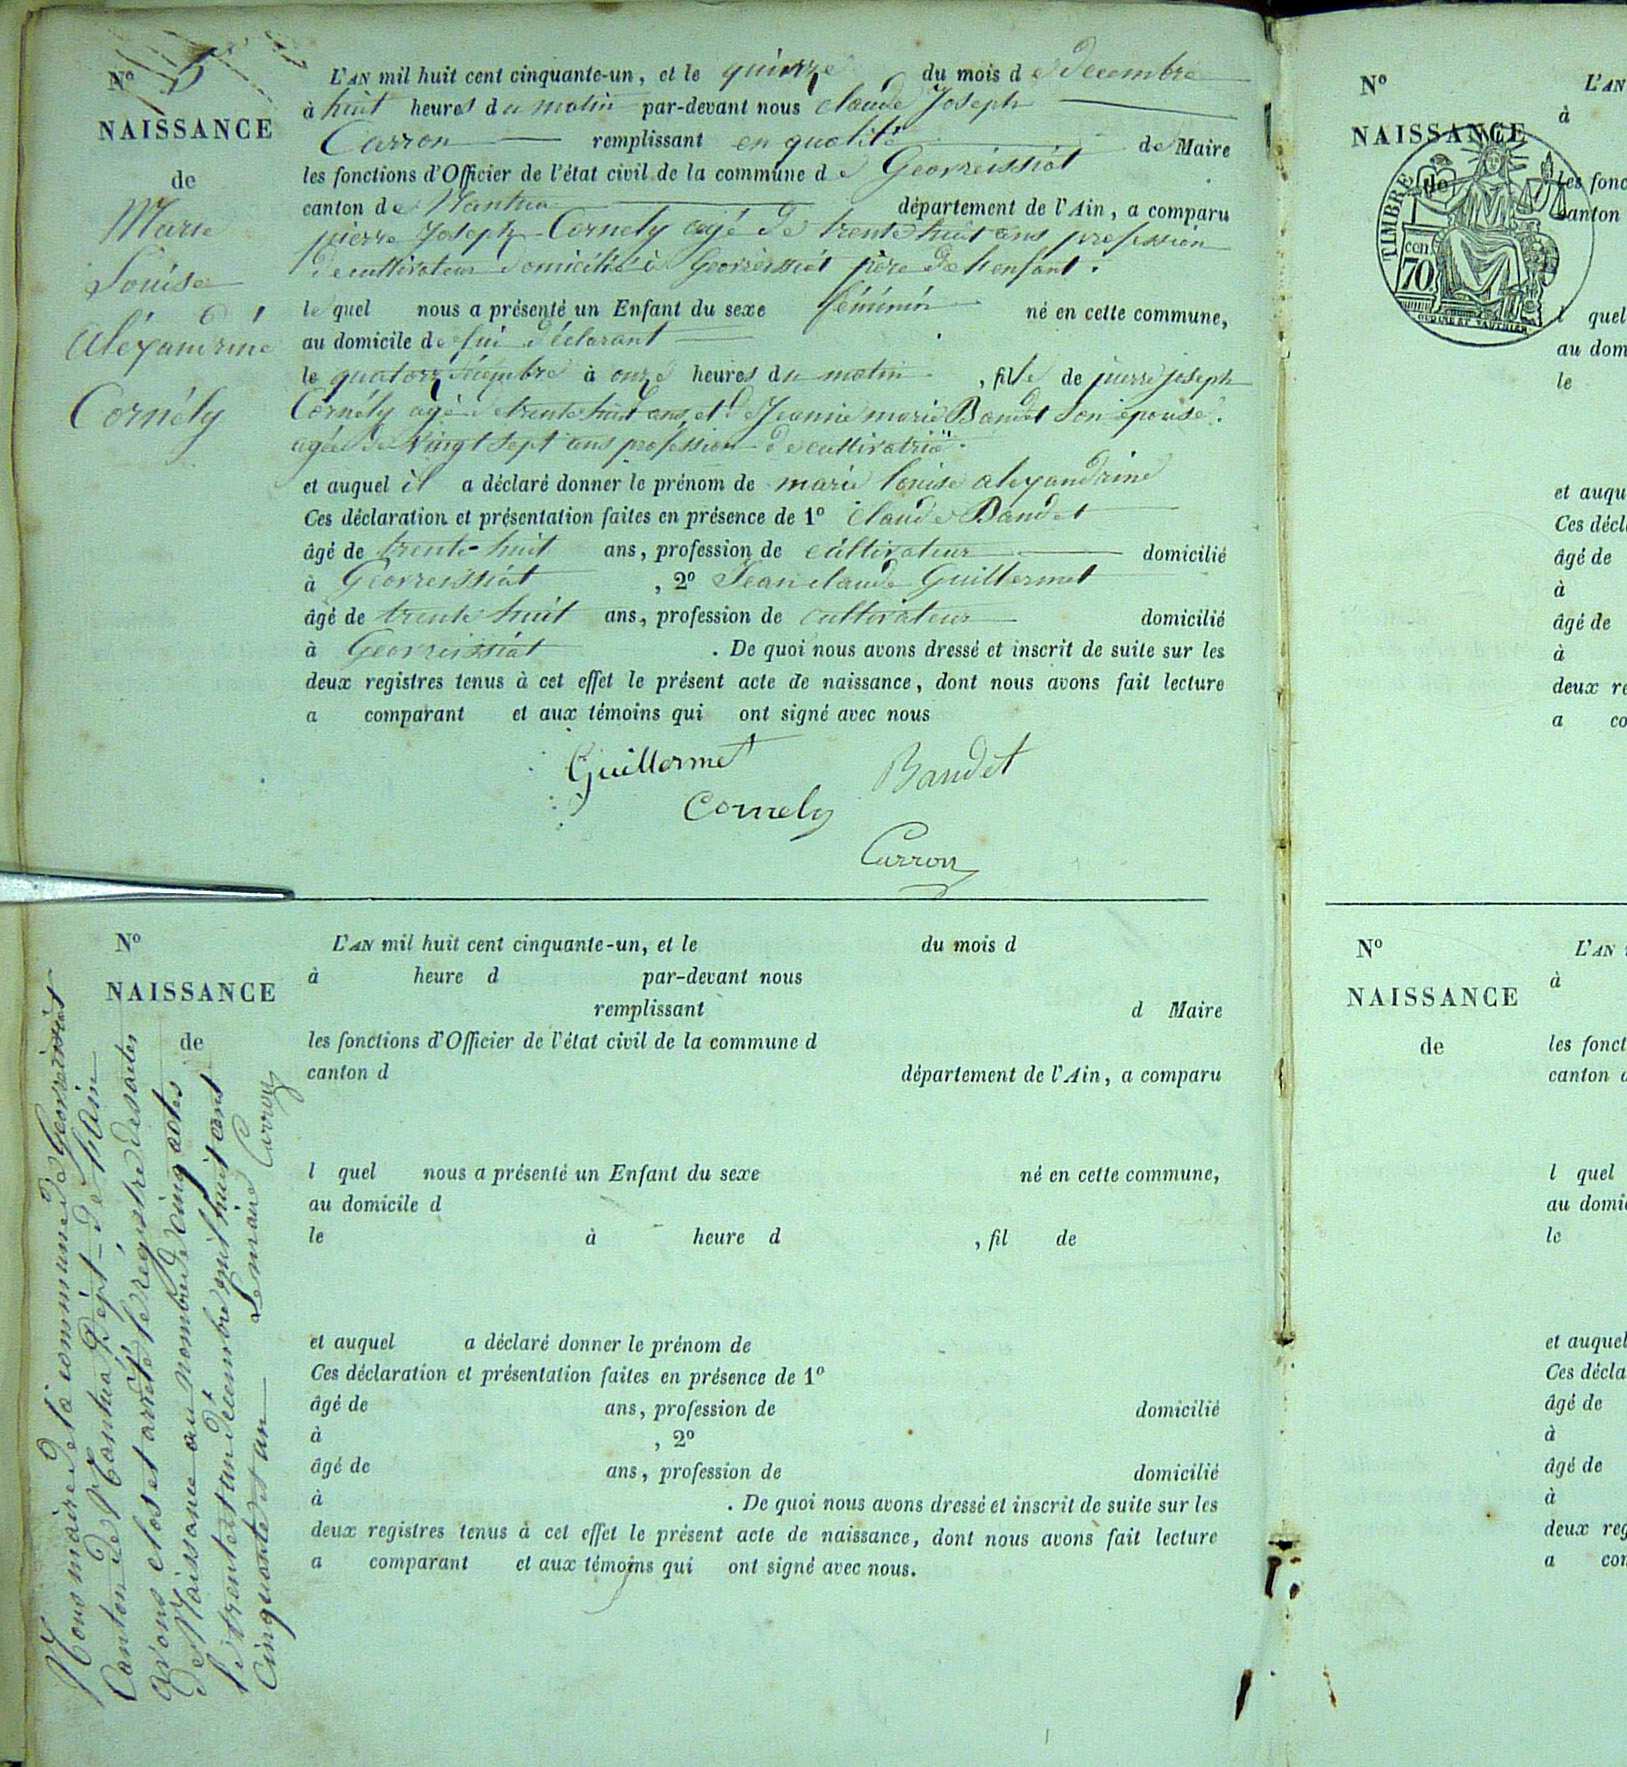 N° 5
NAISSANCE
de
Marie
Louise
Aléxandrine
Cornély
L'AN mil huit cent cinquante-un, et le quinze du mois de decembre
à huit heures du matin par-devant nous claude Joseph
Carron remplissant en qualité de Maire
les fonctions d'Officier de l'état civil de la commune de Geovreissiat
canton de Nantua département de l'Ain, a comparu
pierre Joseph Cornely agé de trente huit ans profession
de cultivateur domicilié à Geovreissiat père de l'enfant.
le quel nous a présenté un Enfant du sexe féminin né en cette commune,
au domicile de lui déclarant
le quatorze décembre à onze heures du matin, fille de pierre joseph
Cornély agé de trente huit ans et de Jeannie marie Baudet son épouse.
agée de vingt sept ans proféssion de cultivatrice.
et auquel il a déclaré donner le prénom de marie louise alexandrine
Ces déclaration et présentation faites en présence de 1° Claude Baudet
âgé de trente-huit ans, profession de cultivateur domicilié
à Geovreissiat, 2° Jean claude Guillermet
âgé de trente huit ans, profession de cultivateur domicilié
à Geovreissiat. De quoi nous avons dressé et inscrit de suite sur les
deux registres tenus à cet effet le présent acte de naissance, dont nous avons fait lecture
a comparant et aux témoins qui ont signé avec nous
Guillermet Baudet
Cornely
Carron
N°
NAISSANCE
de
L'AN mil huit cent cinquante-un, et le du mois d
à heure d par-devant nous
remplissant d Maire
les fonctions d'Officier de l'état civil de la commune d
canton d département de l'Ain, a comparu
l quel nous a présenté un Enfant du sexe né en cette commune,
au domicile d
le à heure d , fil de
et auquel a déclaré donner le prénom de
Ces déclaration et présentation faites en présence de 1°
âgé de ans, profession de domicilié
à , 2°
âgé de ans, profession de domicilié
à . De quoi nous avons dressé et inscrit de suite sur les
deux registres tenus à cet effet le présent acte de naissance, dont nous avons fait lecture
a comparant et aux témoins qui ont signé avec nous.
Nous maire de la commune de Geovreissiat
Canton de Nantua Dépt de l'Ain
avons clos et arrêté le régistre des actes
de Naissance au nombre de cinq actes
le trente et un décembre mil huit cent
cinquante et un Le maire Carron
N°
NAISSANCE
de
L'AN
à
les fonc
canton
TIMBRE
cen.
70
OUDINE ET VAUTHIER
l quel
au dom
le
et auqu
Ces décl
âgé de
à
âgé de
à
deux re
a co
N°
NAISSANCE
de
L'AN
à
les fonct
canton
l quel
au domi
le
et auquel
Ces décla
âgé de
à
âgé de
à
deux reg
a con